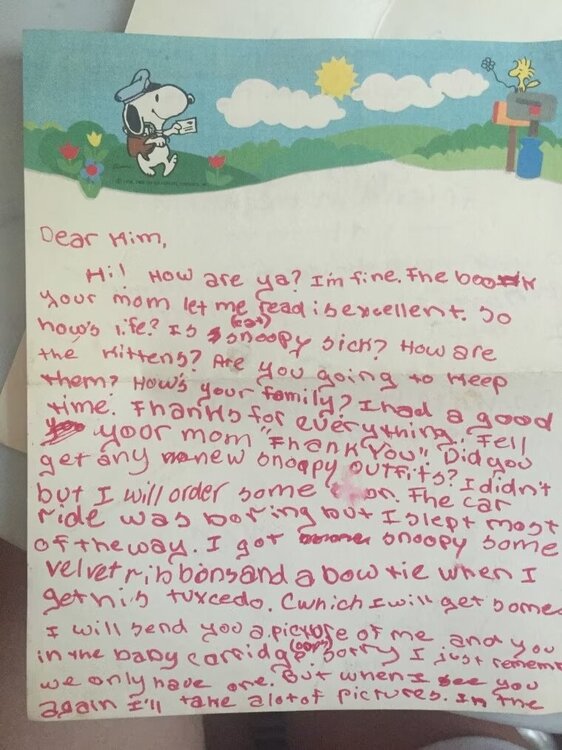 Dear Kim,
Hi! How are ya? I'm fine. The book
your mom let me read is excellent. So
how's life? Is Snoopy (cat) sick? How are
the kittens? Are you going to keep
them? How's your family? I had a good
time. Thanks for everything. Tell
your mom "Thank You". Did you
get any new snoopy outfits? I didn't
but I will order some soon. The car
ride was boring but I slept most
of the way. I got snoopy some
velvet ribbons and a bow tie when I
get his tuxcedo. (which I will get some
I will send you a picture of me and you
in the baby carridge (oops) sorry I just rememb
we only have one. But when I see you
again I'll take alotof pictures. In the